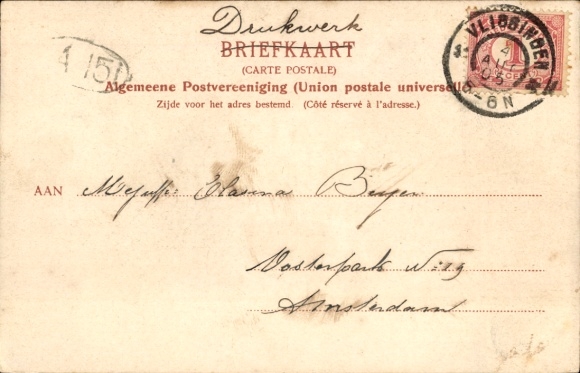 Drukwerk
BRIEFKAART
(CARTE POSTALE)
Algemeene Postvereeniging (Union postale universelle)
Zijde voor het adres bestemd. (Côté réservé à l'adresse.)
VLISSINGEN
4
AUG
5-6N
AAN Mejuffr: Clasina Beijer
Oosterpark No: 19
Amsterdam